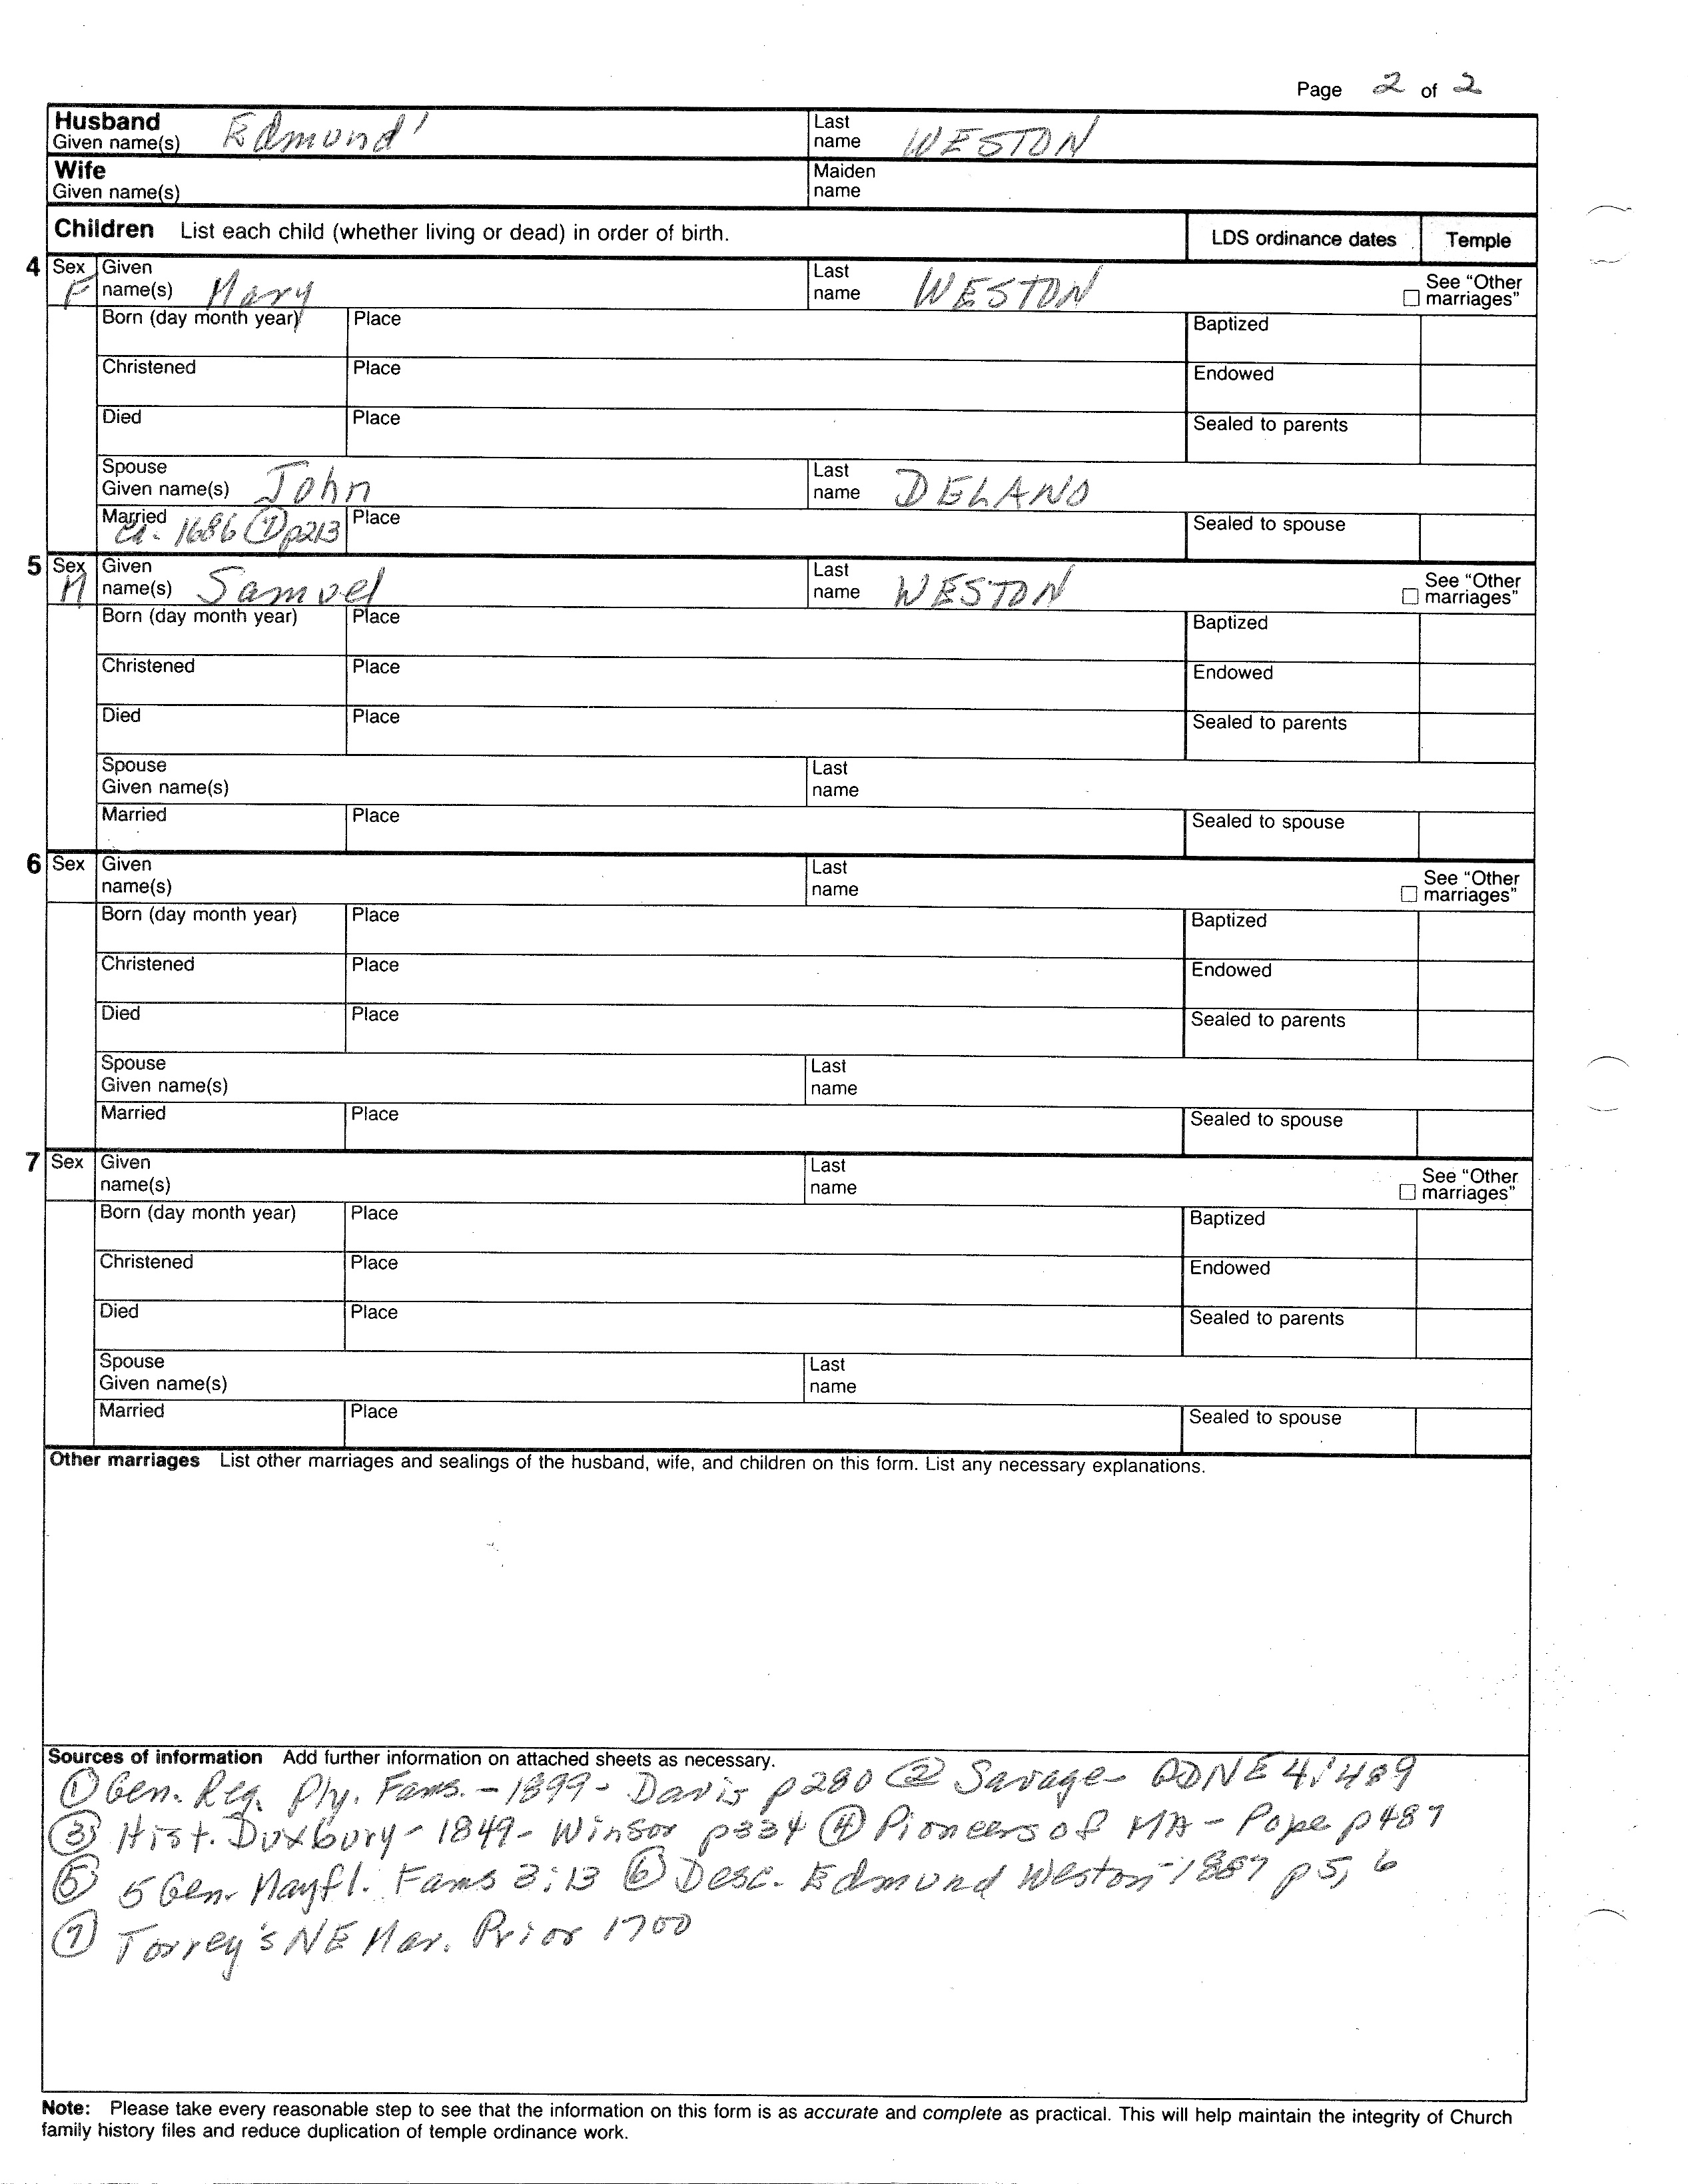 Page 2 of 2
Husband Given name(s) Edmund' Last name WESTON
Wife Given name(s) Maiden name
Children List each child (whether living or dead) in order of birth. LDS ordinance dates Temple
4 Sex F Given name(s) Mary Last name WESTON See "Other marriages"
Born (day month year) Place Baptized
Christened Place Endowed
Died Place Sealed to parents
Spouse Given name(s) John Last name DELANO
Married ca. 1686 ⑦ p213 Place Sealed to spouse
5 Sex M Given name(s) Samuel Last name WESTON See "Other marriages"
Born (day month year) Place Baptized
Christened Place Endowed
Died Place Sealed to parents
Spouse Given name(s) Last name
Married Place Sealed to spouse
6 Sex Given name(s) Last name See "Other marriages"
Born (day month year) Place Baptized
Christened Place Endowed
Died Place Sealed to parents
Spouse Given name(s) Last name
Married Place Sealed to spouse
7 Sex Given name(s) Last name See "Other marriages"
Born (day month year) Place Baptized
Christened Place Endowed
Died Place Sealed to parents
Spouse Given name(s) Last name
Married Place Sealed to spouse
Other marriages List other marriages and sealings of the husband, wife, and children on this form. List any necessary explanations.
Sources of information Add further information on attached sheets as necessary.
① Gen. Reg. Ply. Fams. - 1899 - Davis p280 ② Savage - GDNE 4:489
③ Hist. Duxbury - 1849 - Winsor p334 ④ Pioneers of MA - Pope p487
⑤ 5 Gen. Mayfl. Fams 3:13 ⑥ Desc. Edmund Weston - 1887 p5, 6
⑦ Torrey's NE Mar. Prior 1700
Note: Please take every reasonable step to see that the information on this form is as accurate and complete as practical. This will help maintain the integrity of Church
family history files and reduce duplication of temple ordinance work.